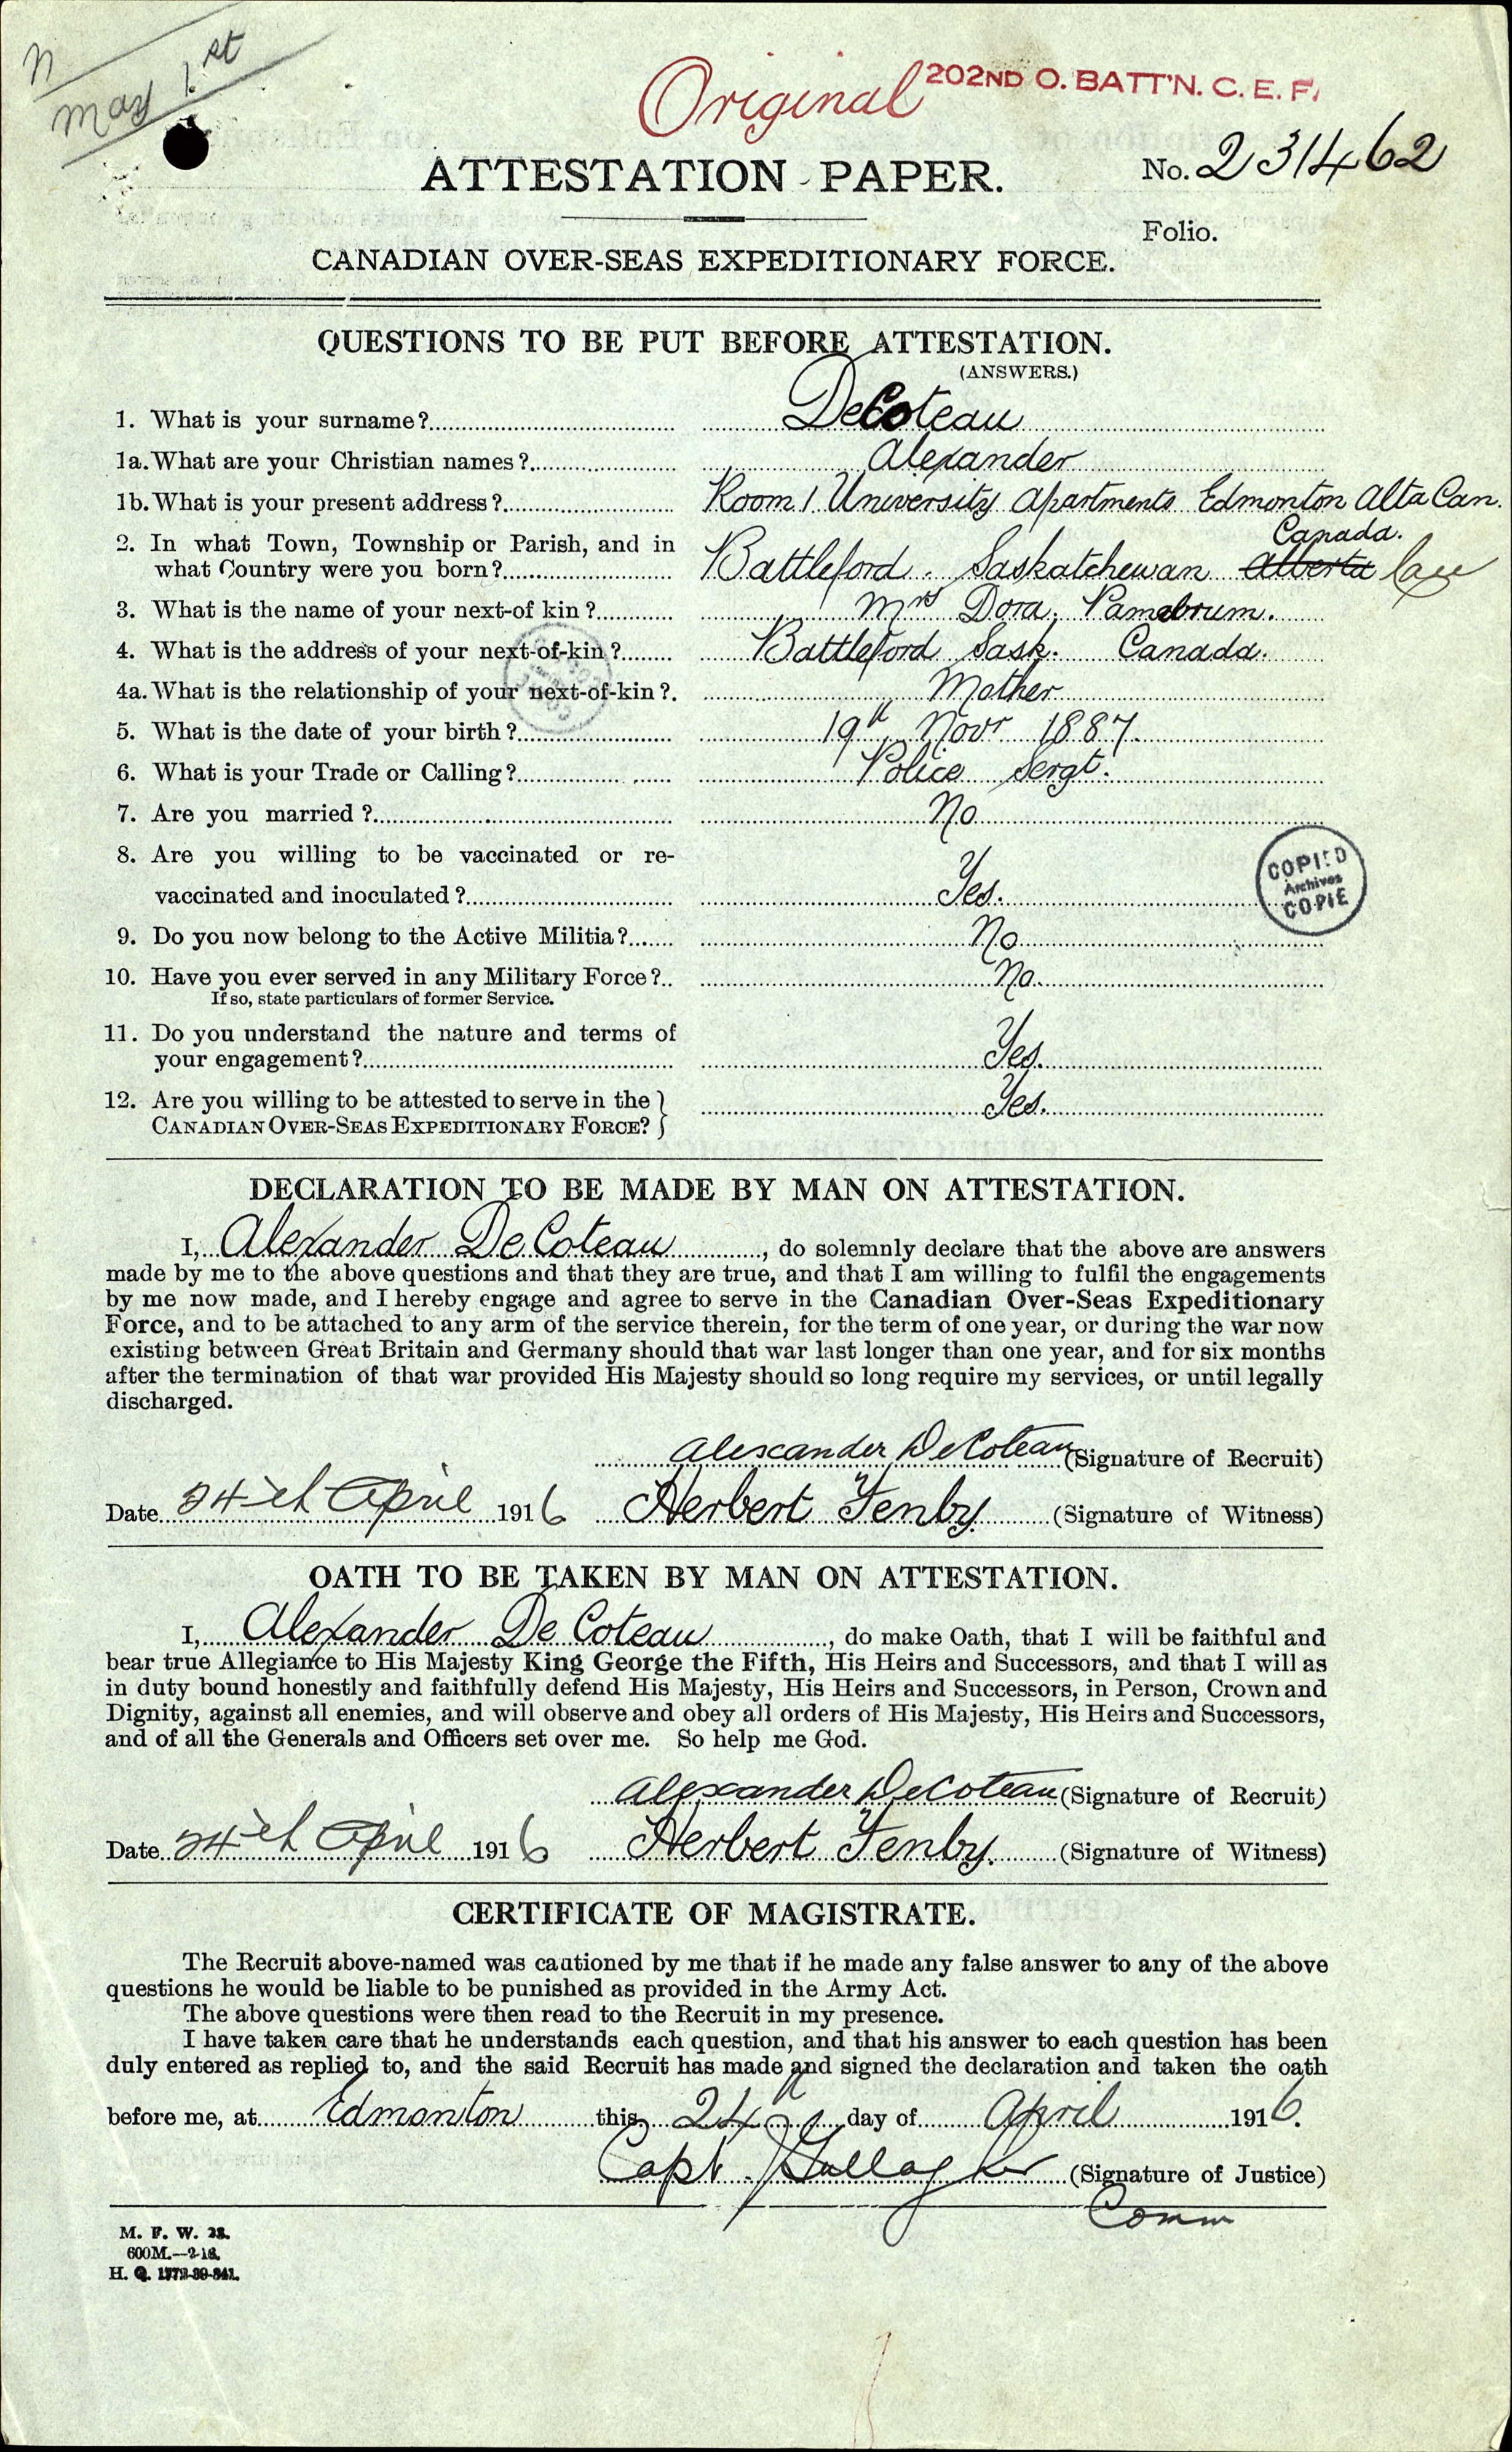 n
May 1.st
Original 202ND O. BATT'N. C. E. F.
ATTESTATION PAPER.
No. 231462
Folio.
CANADIAN OVER-SEAS EXPEDITIONARY FORCE.
QUESTIONS TO BE PUT BEFORE ATTESTATION.
(ANSWERS.)
1. What is your surname? DeCoteau
1a. What are your Christian names? Alexander
1b. What is your present address? Room 1 University Apartments Edmonton Alta Can.
2. In what Town, Township or Parish, and in Canada.
what Country were you born? Battleford. Saskatchewan Alberta
3. What is the name of your next-of kin? Mrs Dora. Pambrum.
4. What is the address of your next-of-kin? Battleford Sask. Canada.
4a. What is the relationship of your next-of-kin? Mother
5. What is the date of your birth? 19th Novr 1887.
6. What is your Trade or Calling? Police Sergt.
7. Are you married? No
8. Are you willing to be vaccinated or re-
vaccinated and inoculated? Yes.
COPIED
Archives
COPIE
9. Do you now belong to the Active Militia? No
10. Have you ever served in any Military Force? No.
If so, state particulars of former Service.
11. Do you understand the nature and terms of
your engagement? Yes.
12. Are you willing to be attested to serve in the } Yes.
CANADIAN OVER-SEAS EXPEDITIONARY FORCE?
DECLARATION TO BE MADE BY MAN ON ATTESTATION.
I, Alexander De Coteau, do solemnly declare that the above are answers
made by me to the above questions and that they are true, and that I am willing to fulfil the engagements
by me now made, and I hereby engage and agree to serve in the Canadian Over-Seas Expeditionary
Force, and to be attached to any arm of the service therein, for the term of one year, or during the war now
existing between Great Britain and Germany should that war last longer than one year, and for six months
after the termination of that war provided His Majesty should so long require my services, or until legally
discharged.
Alexander DeCoteau (Signature of Recruit)
Date 24th April 1916 Herbert Fenby. (Signature of Witness)
OATH TO BE TAKEN BY MAN ON ATTESTATION.
I, Alexander De Coteau, do make Oath, that I will be faithful and
bear true Allegiance to His Majesty King George the Fifth, His Heirs and Successors, and that I will as
in duty bound honestly and faithfully defend His Majesty, His Heirs and Successors, in Person, Crown and
Dignity, against all enemies, and will observe and obey all orders of His Majesty, His Heirs and Successors,
and of all the Generals and Officers set over me. So help me God.
Alexander DeCoteau (Signature of Recruit)
Date 24th April 1916 Herbert Fenby. (Signature of Witness)
CERTIFICATE OF MAGISTRATE.
The Recruit above-named was cautioned by me that if he made any false answer to any of the above
questions he would be liable to be punished as provided in the Army Act.
The above questions were then read to the Recruit in my presence.
I have taken care that he understands each question, and that his answer to each question has been
duly entered as replied to, and the said Recruit has made and signed the declaration and taken the oath
before me, at Edmonton this 24 day of April 1916.
Capt. J Gallagher (Signature of Justice)
Comm
M. F. W. 23.
600M.—2-16.
H. Q. 1772-39-841.